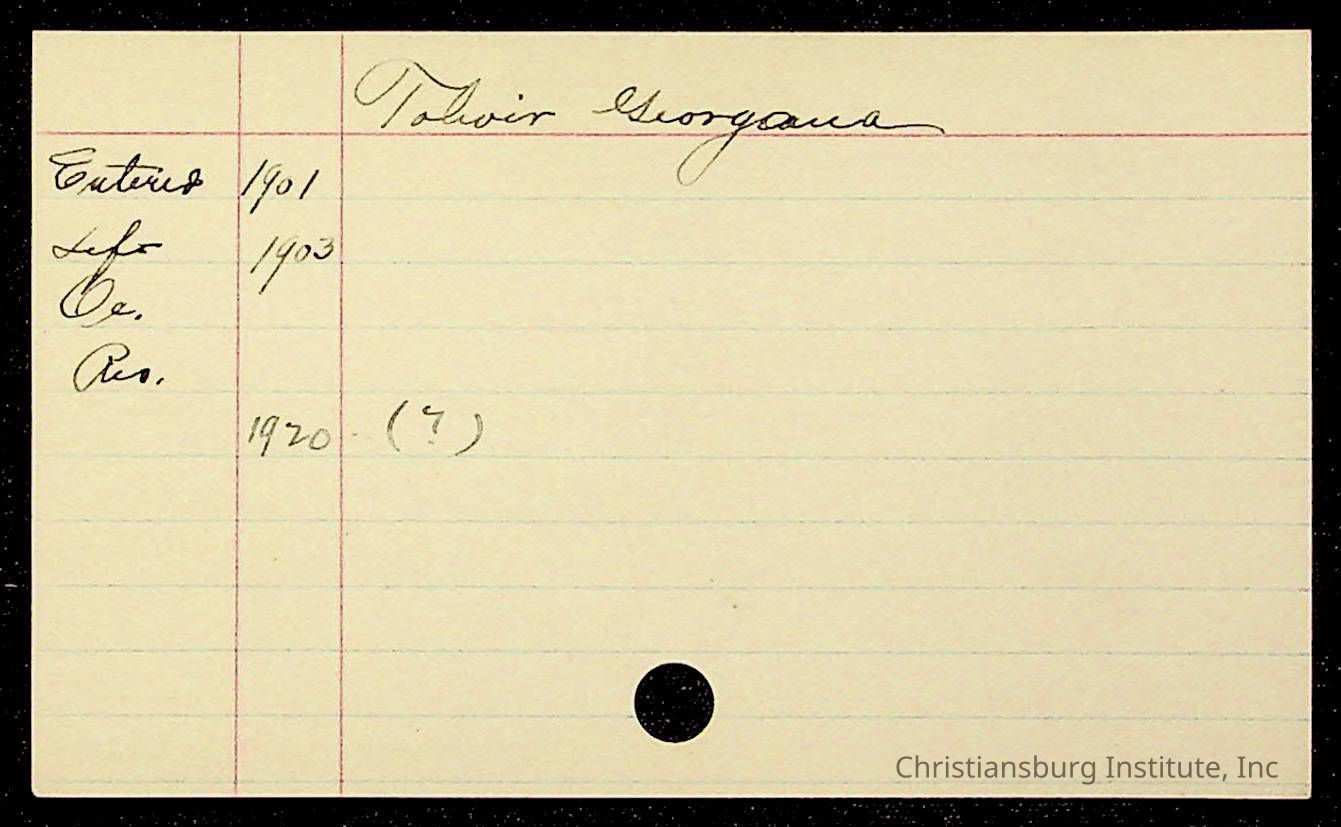 Tolivir Georgana
Entered 1901
Left 1903
Oc.
Res.
1920 (?)
Christiansburg Institute, Inc